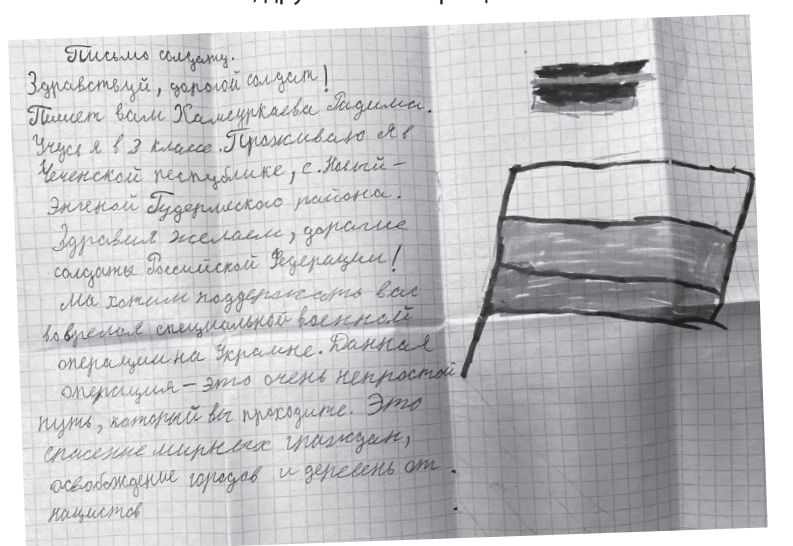 Письмо солдату.
Здравствуй, дорогой солдат!
Пишет вам Хамсуркаева Радима.
Учусь я в 3 классе. Проживаю я в
Чеченской республике, с. Новый-
Энгеной Гудермеского района.
Здравия желаем, дорогие
солдаты Российской Федерации!
Мы хотим поддержать вас
во время специальной военной
операции на Украине. Данная
операция – это очень непростой
путь, который вы проходите. Это
спасение мирных граждан,
освобождение городов и деревень от
нацистов